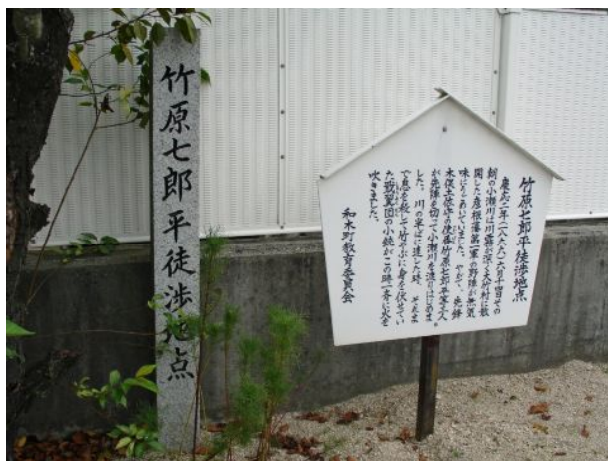 竹原七郎平徒渉地点
竹原七郎平徒渉地点
慶応二年(一八六六)六月十四日その
朝の小瀬川は川霧が深く大竹村に散
開した彦根藩第一軍の野陣が無気
味にうあいていました。やがて、先鋒
木俣土佐守の使番竹原七郎平等三人
が先陣を切って小瀬川を渡りはじめま
した。川の半ばに達した時、それま
で息を殺して竹やぶに身を伏せてい
た、戦翼団の小銃がこの時一斉に火を
吹きました。
和木町教育委員会